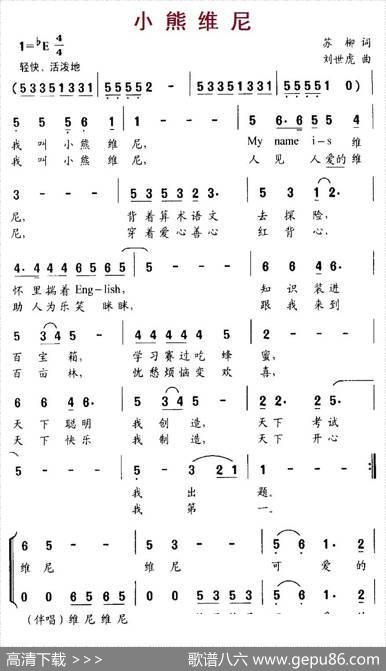 小熊维尼
1=♭E 4/4
苏 柳 词
轻快、活泼地
刘世虎 曲
(53351331 | 5555552 - | 53351331 | 5555551 0) |
5 5 5 6 1 | 1 - - - | 5 6· 6 5 5 |
我 叫 小 熊 维 尼, My name i-s 维
我 叫 小 熊 维 尼, 人 见 人 爱的 维
3 - - - | 5 5 3 5 3 2 | 5 3 1 2 |
尼, 背着算术语文 去 探 险,
尼, 穿着爱心善心 红 背 心,
4· 4 4 4 6 5 6 5 | 5 - - - | 6 6 4 5 4· |
怀里揣着Eng-lish, 知 识 装进
助人为乐笑眯眯, 跟 我 来到
5 3 4 5 - | 4 4 4 4 4 5 | 5 - - - |
百 宝 箱, 学习赛过吃 蜂 蜜,
百 亩 林, 忧愁烦恼变 欢 喜,
6 6 4 6· | 5 3 1 - | 2 2· 2 2· |
天 下 聪明 我 创 造, 天 下 考试
天 下 快乐 我 制 造, 天 下 开心
5 - - - | 5 - 3 2 1 | 1 - - - :‖
我 出 题。
我 第 一。
6 5 - - | 5 3 - - | 5 6 1· 2 |
维 尼 维 尼 可 爱 的
0 0 5 6 5 5 | 0 0 5 6 5 3 | 5 6 1· 2 |
(伴唱) 维尼维尼
高清下载 >>>
歌谱八六 www.gepu86.com